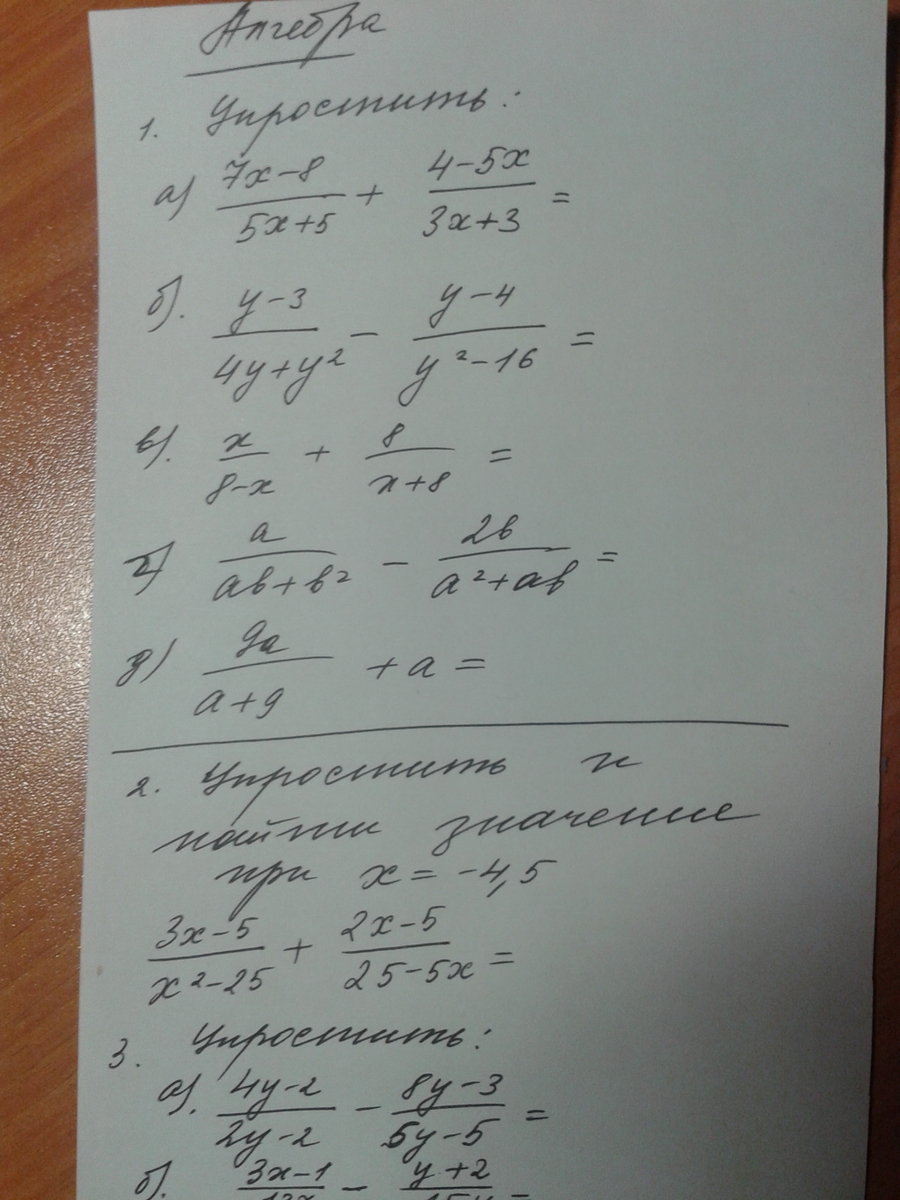 Алгебра
1. Упростить:
а) (7x-8)/(5x+5) + (4-5x)/(3x+3) =
б). (y-3)/(4y+y²) - (y-4)/(y²-16) =
в). x/(8-x) + 8/(x+8) =
г) a/(ab+b²) - 2b/(a²+ab) =
д) 9a/(a+9) + a =
2. Упростить и
найти значение
при x = -4,5
(3x-5)/(x²-25) + (2x-5)/(25-5x) =
3. Упростить:
а). (4y-2)/(2y-2) - (8y-3)/(5y-5) =
б). (3x-1)/ - (y+2)/ =